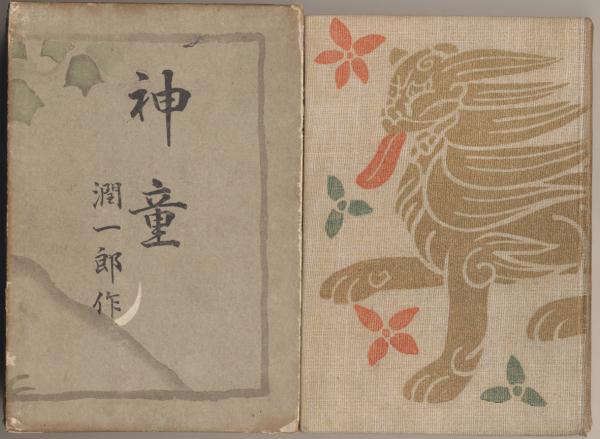 神童
潤一郎作